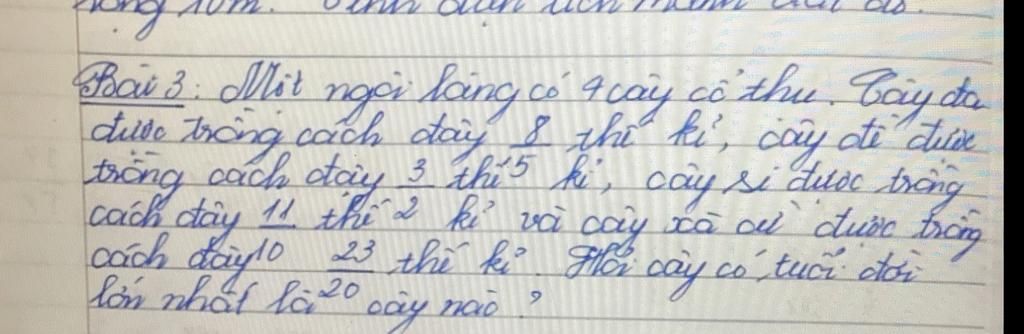 rộng 10m. Tính diện tích mảnh đất đó.
Bài 3: Một ngôi làng có 4 cây cổ thụ. Cây đa
được trồng cách đây 8/5 thế kỉ, cây đề được
trồng cách đây 3/2 thế kỉ, cây si được trồng
cách đây 11/10 thế kỉ và cây xà cừ được trồng
cách đây 23/20 thế kỉ. Hỏi cây có tuổi đời
lớn nhất là cây nào?